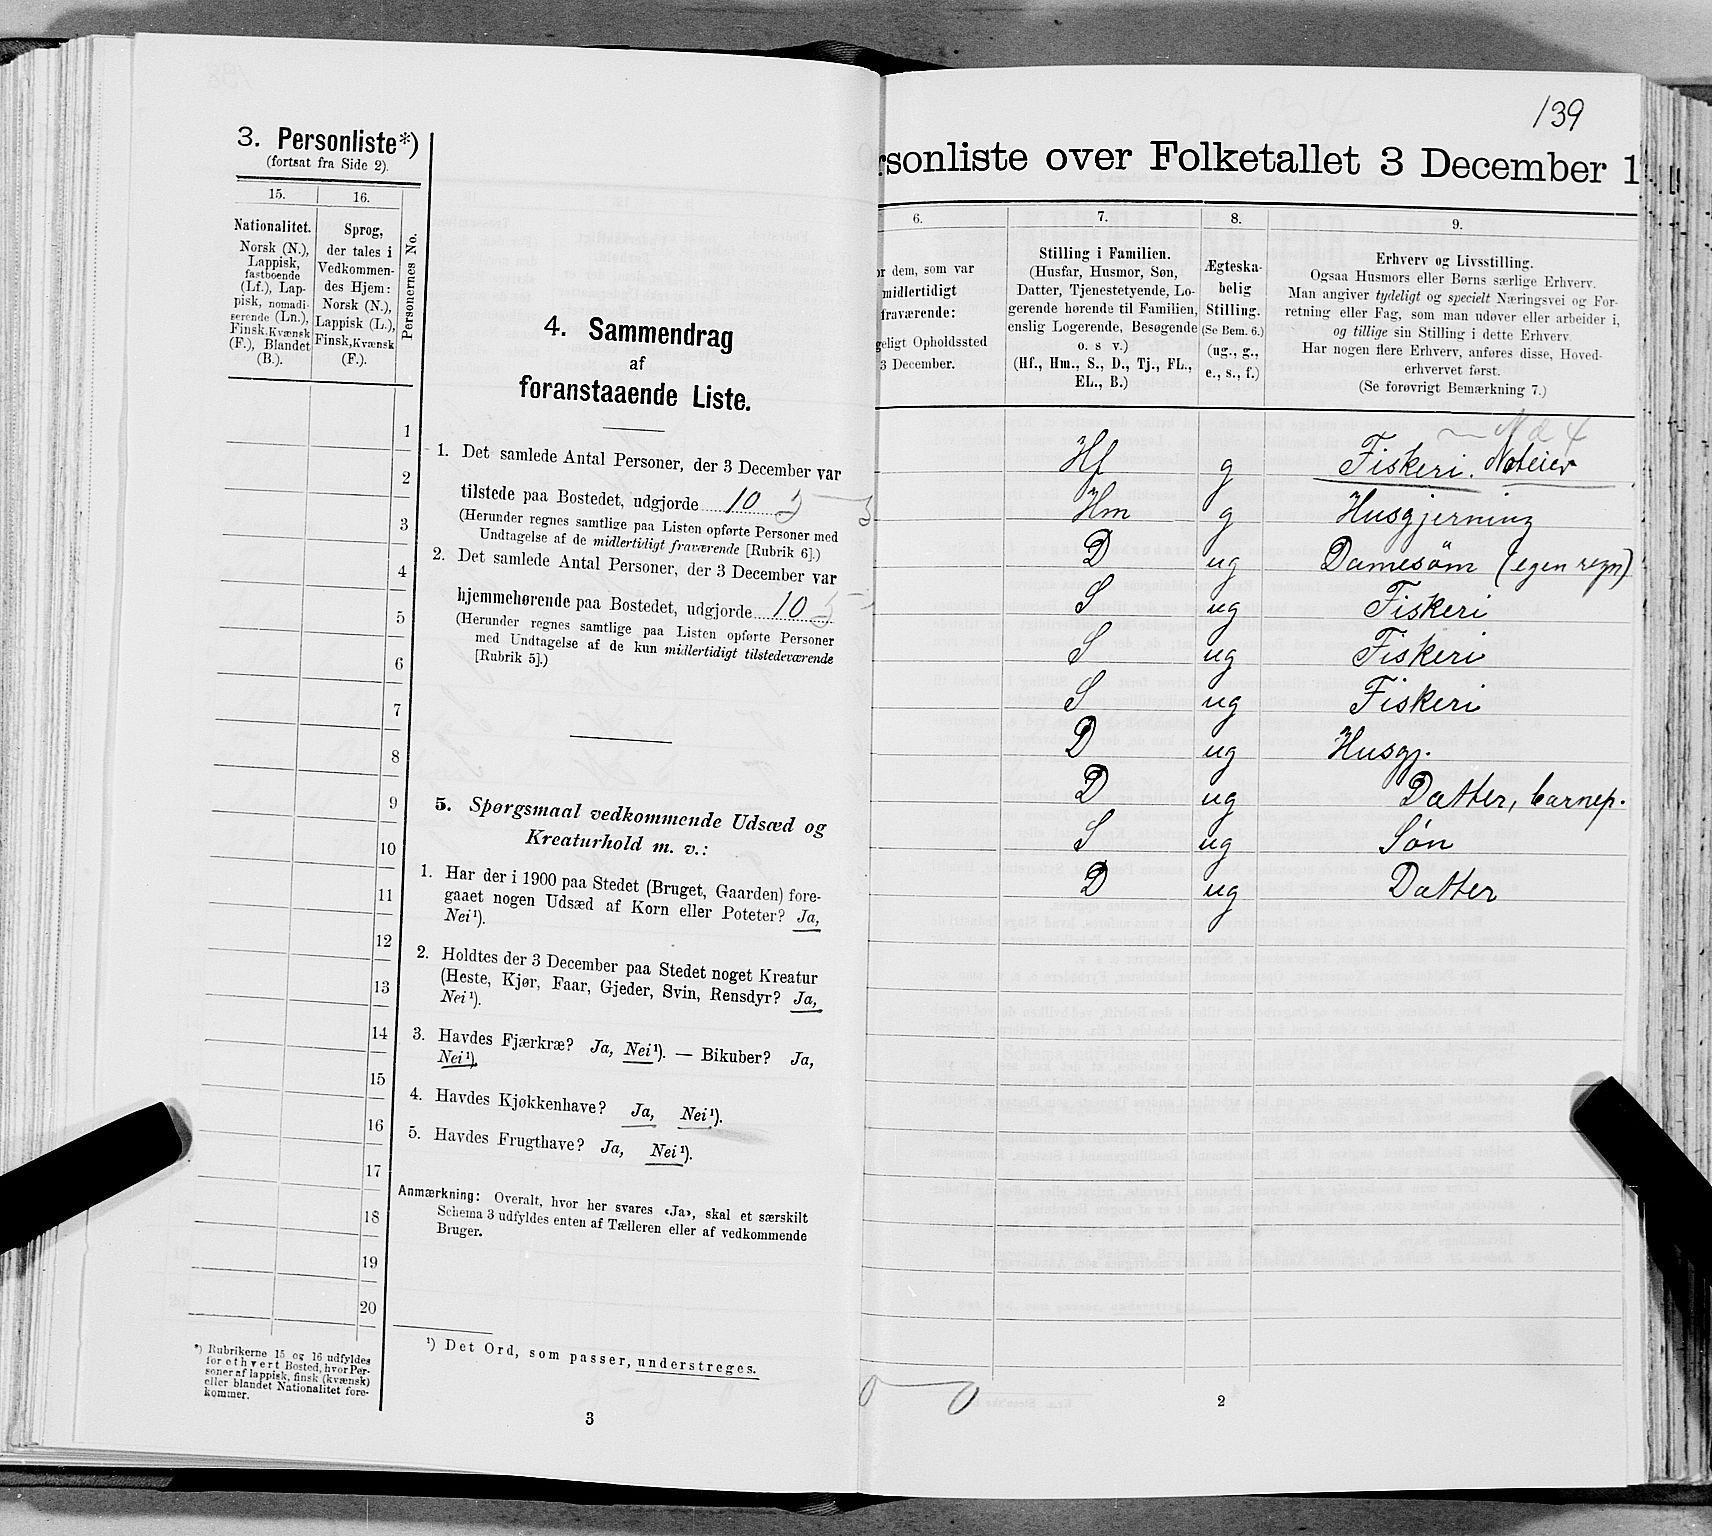 3. Personliste*)
(fortsat fra Side 2).
15.
16.
Personernes No.
Nationalitet.
Norsk (N.),
Lappisk,
fastboende
(Lf.), Lap-
pisk, nomadi-
serende (Ln.),
Finsk, Kvænsk
(F.), Blandet
(B.).
Sprog,
der tales i
Vedkommen-
des Hjem:
Norsk (N.),
Lappisk (L.),
Finsk, Kvænsk
(F.).
1
2
3
4
5
6
7
8
9
10
11
12
13
14
15
16
17
18
19
20
*) Rubrikerne 15 og 16 udfyldes
for ethvert Bosted, hvor Per-
soner af lappisk, finsk (kvænsk)
eller blandet Nationalitet fore-
kommer.
4. Sammendrag
af
foranstaaende Liste.
1. Det samlede Antal Personer, der 3 December var
tilstede paa Bostedet, udgjorde 10
(Herunder regnes samtlige paa Listen opførte Personer med
Undtagelse af de midlertidigt fraværende [Rubrik 6].)
2. Det samlede Antal Personer, der 3 December var
hjemmehørende paa Bostedet, udgjorde 10
(Herunder regnes samtlige paa Listen opførte Personer
med Undtagelse af de kun midlertidigt tilstedeværende
[Rubrik 5].)
5. Spørgsmaal vedkommende Udsæd og
Kreaturhold m. v.:
1. Har der i 1900 paa Stedet (Bruget, Gaarden) fore-
gaaet nogen Udsæd af Korn eller Poteter? Ja,
Nei¹).
2. Holdtes der 3 December paa Stedet noget Kreatur
(Heste, Kjør, Faar, Gjeder, Svin, Rensdyr? Ja,
Nei¹).
3. Havdes Fjærkræ? Ja, Nei¹). — Bikuber? Ja,
Nei¹).
4. Havdes Kjøkkenhave? Ja, Nei¹).
5. Havdes Frugthave? Ja, Nei¹).
Anmærkning: Overalt, hvor her svares «Ja», skal et særskilt
Schema 3 udfyldes enten af Tælleren eller af vedkommende
Bruger.
¹) Det Ord, som passer, understreges.
3
139
rsonliste over Folketallet 3 December 1
6.
7.
8.
9.
or dem, som var
midlertidigt
fraværende:
geligt Opholdssted
3 December.
Stilling i Familien.
(Husfar, Husmor, Søn,
Datter, Tjenestetyende, Lo-
gerende hørende til Familien,
enslig Logerende, Besøgende
o. s v.)
(Hf., Hm., S., D., Tj., FL.,
EL., B.)
Ægteska-
belig
Stilling.
(Se Bem. 6.)
(ug., g.,
e., s., f.)
Erhverv og Livsstilling.
Ogsaa Husmors eller Børns særlige Erhverv.
Man angiver tydeligt og specielt Næringsvei og For-
retning eller Fag, som man udøver eller arbeider i,
og tillige sin Stilling i dette Erhverv.
Har nogen flere Erhverv, anføres disse, Hoved-
erhvervet først.
(Se forøvrigt Bemærkning 7.)
Hf g Fiskeri. Noteier
Hm g Husgjerning
D ug Damesöm (egen regn)
S ug Fiskeri
S ug Fiskeri
S ug Fiskeri
D ug Husgj.
D ug Datter, barnep.
S ug Søn
D ug Datter
0 0
2